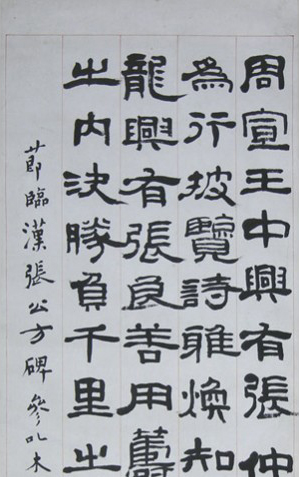 周宣王中興有張仲
為行披覽詩雅煥知
龍興有張良善用籌
之內決勝負千里之
節臨漢張公方碑 參以木